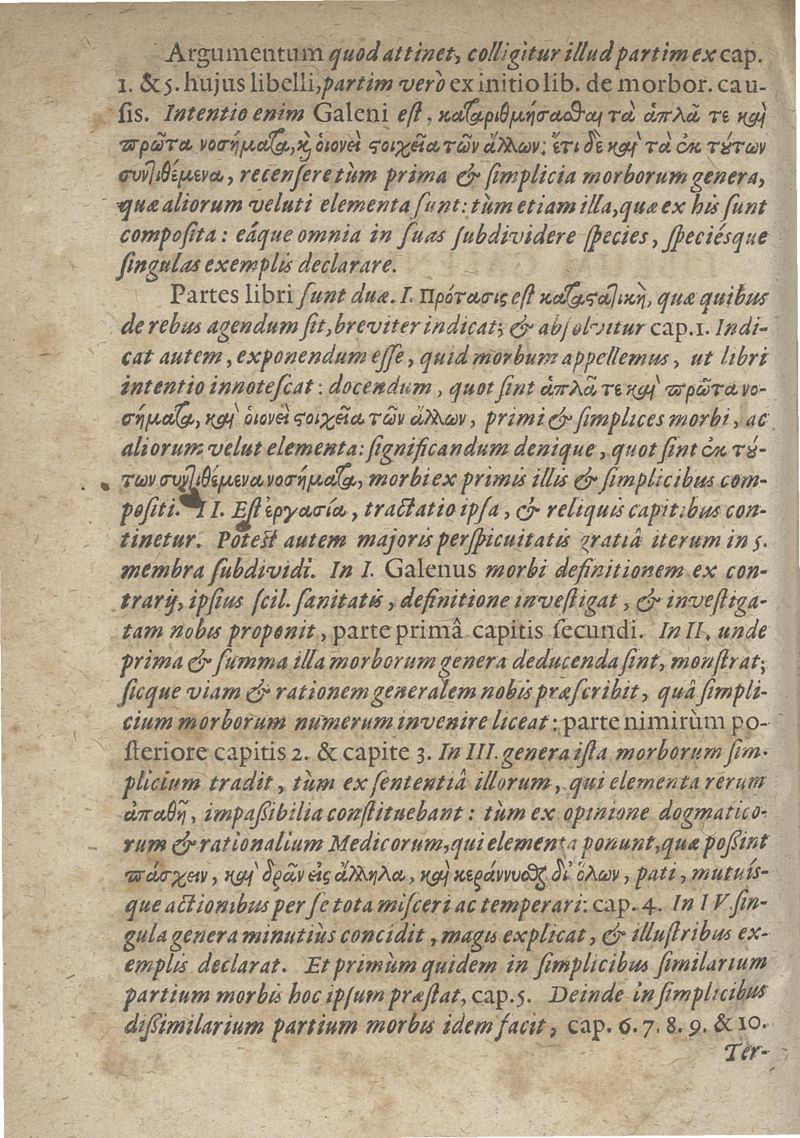 Argumentum quod attinet, colligitur illud partim ex cap.
1. & 5. hujus libelli, partim verò ex initio lib. de morbor. cau-
sis. Intentio enim Galeni est, καταριθμήσασθαι τὰ ἁπλᾶ τε καὶ
πρῶτα νοσήματα, καὶ ὁιονεὶ στοιχεῖα τῶν ἄλλων: ἔτι δὲ καὶ τὰ ἐκ τούτων
συντιθέμενα, recensere tùm prima & simplicia morborum genera,
quæ aliorum veluti elementa sunt: tùm etiam illa, quæ ex his sunt
composita: eáque omnia in suas subdividere species, speciésque
singulas exemplis declarare.
Partes libri sunt duæ. I. Πρότασις est καταστατικὴ, quæ quibus
de rebus agendum sit, breviter indicat; & absolvitur cap. 1. Indi-
cat autem, exponendum esse, quid morbum appellemus, ut libri
intentio innotescat: docendum, quot sint ἁπλᾶ τε καὶ πρῶτα νο-
σήματα, καὶ ὁιονεὶ στοιχεῖα τῶν ἄλλων, primi & simplices morbi, ac
aliorum velut elementa: significandum denique, quot sint ἐκ τού-
των συντιθέμενα νοσήματα, morbi ex primis illis & simplicibus com-
positi. II. Est ἐργασία, tractatio ipsa, & reliquis capitibus con-
tinetur. Potest autem majoris perspicuitatis gratiâ iterum in 5.
membra subdividi. In I. Galenus morbi definitionem ex con-
trarij, ipsius scil. sanitatis, definitione investigat, & investiga-
tam nobis proponit, parte primâ capitis secundi. In II. unde
prima & summa illa morborum genera deducenda sint, monstrat;
sicque viam & rationem generalem nobis præscribit, quâ simpli-
cium morborum numerum invenire liceat: parte nimirùm po-
steriore capitis 2. & capite 3. In III. genera ista morborum sim-
plicium tradit, tùm ex sententiâ illorum, qui elementa rerum
ἀπαθῆ, impassibilia constituebant: tùm ex opinione dogmatico-
rum & rationalium Medicorum, qui elementa ponunt, quæ possint
πάσχειν, καὶ δρᾶν εἰς ἄλληλα, καὶ κεράννυσθαι δι' ὅλων, pati, mutuís-
que actionibus per se tota misceri ac temperari: cap. 4. In IV. sin-
gula genera minutiùs concidit, magis explicat, & illustribus ex-
emplis declarat. Et primùm quidem in simplicibus similarium
partium morbis hoc ipsum præstat, cap. 5. Deinde in simplicibus
dissimilarium partium morbis idem facit, cap. 6. 7. 8. 9. & 10.
Ter-